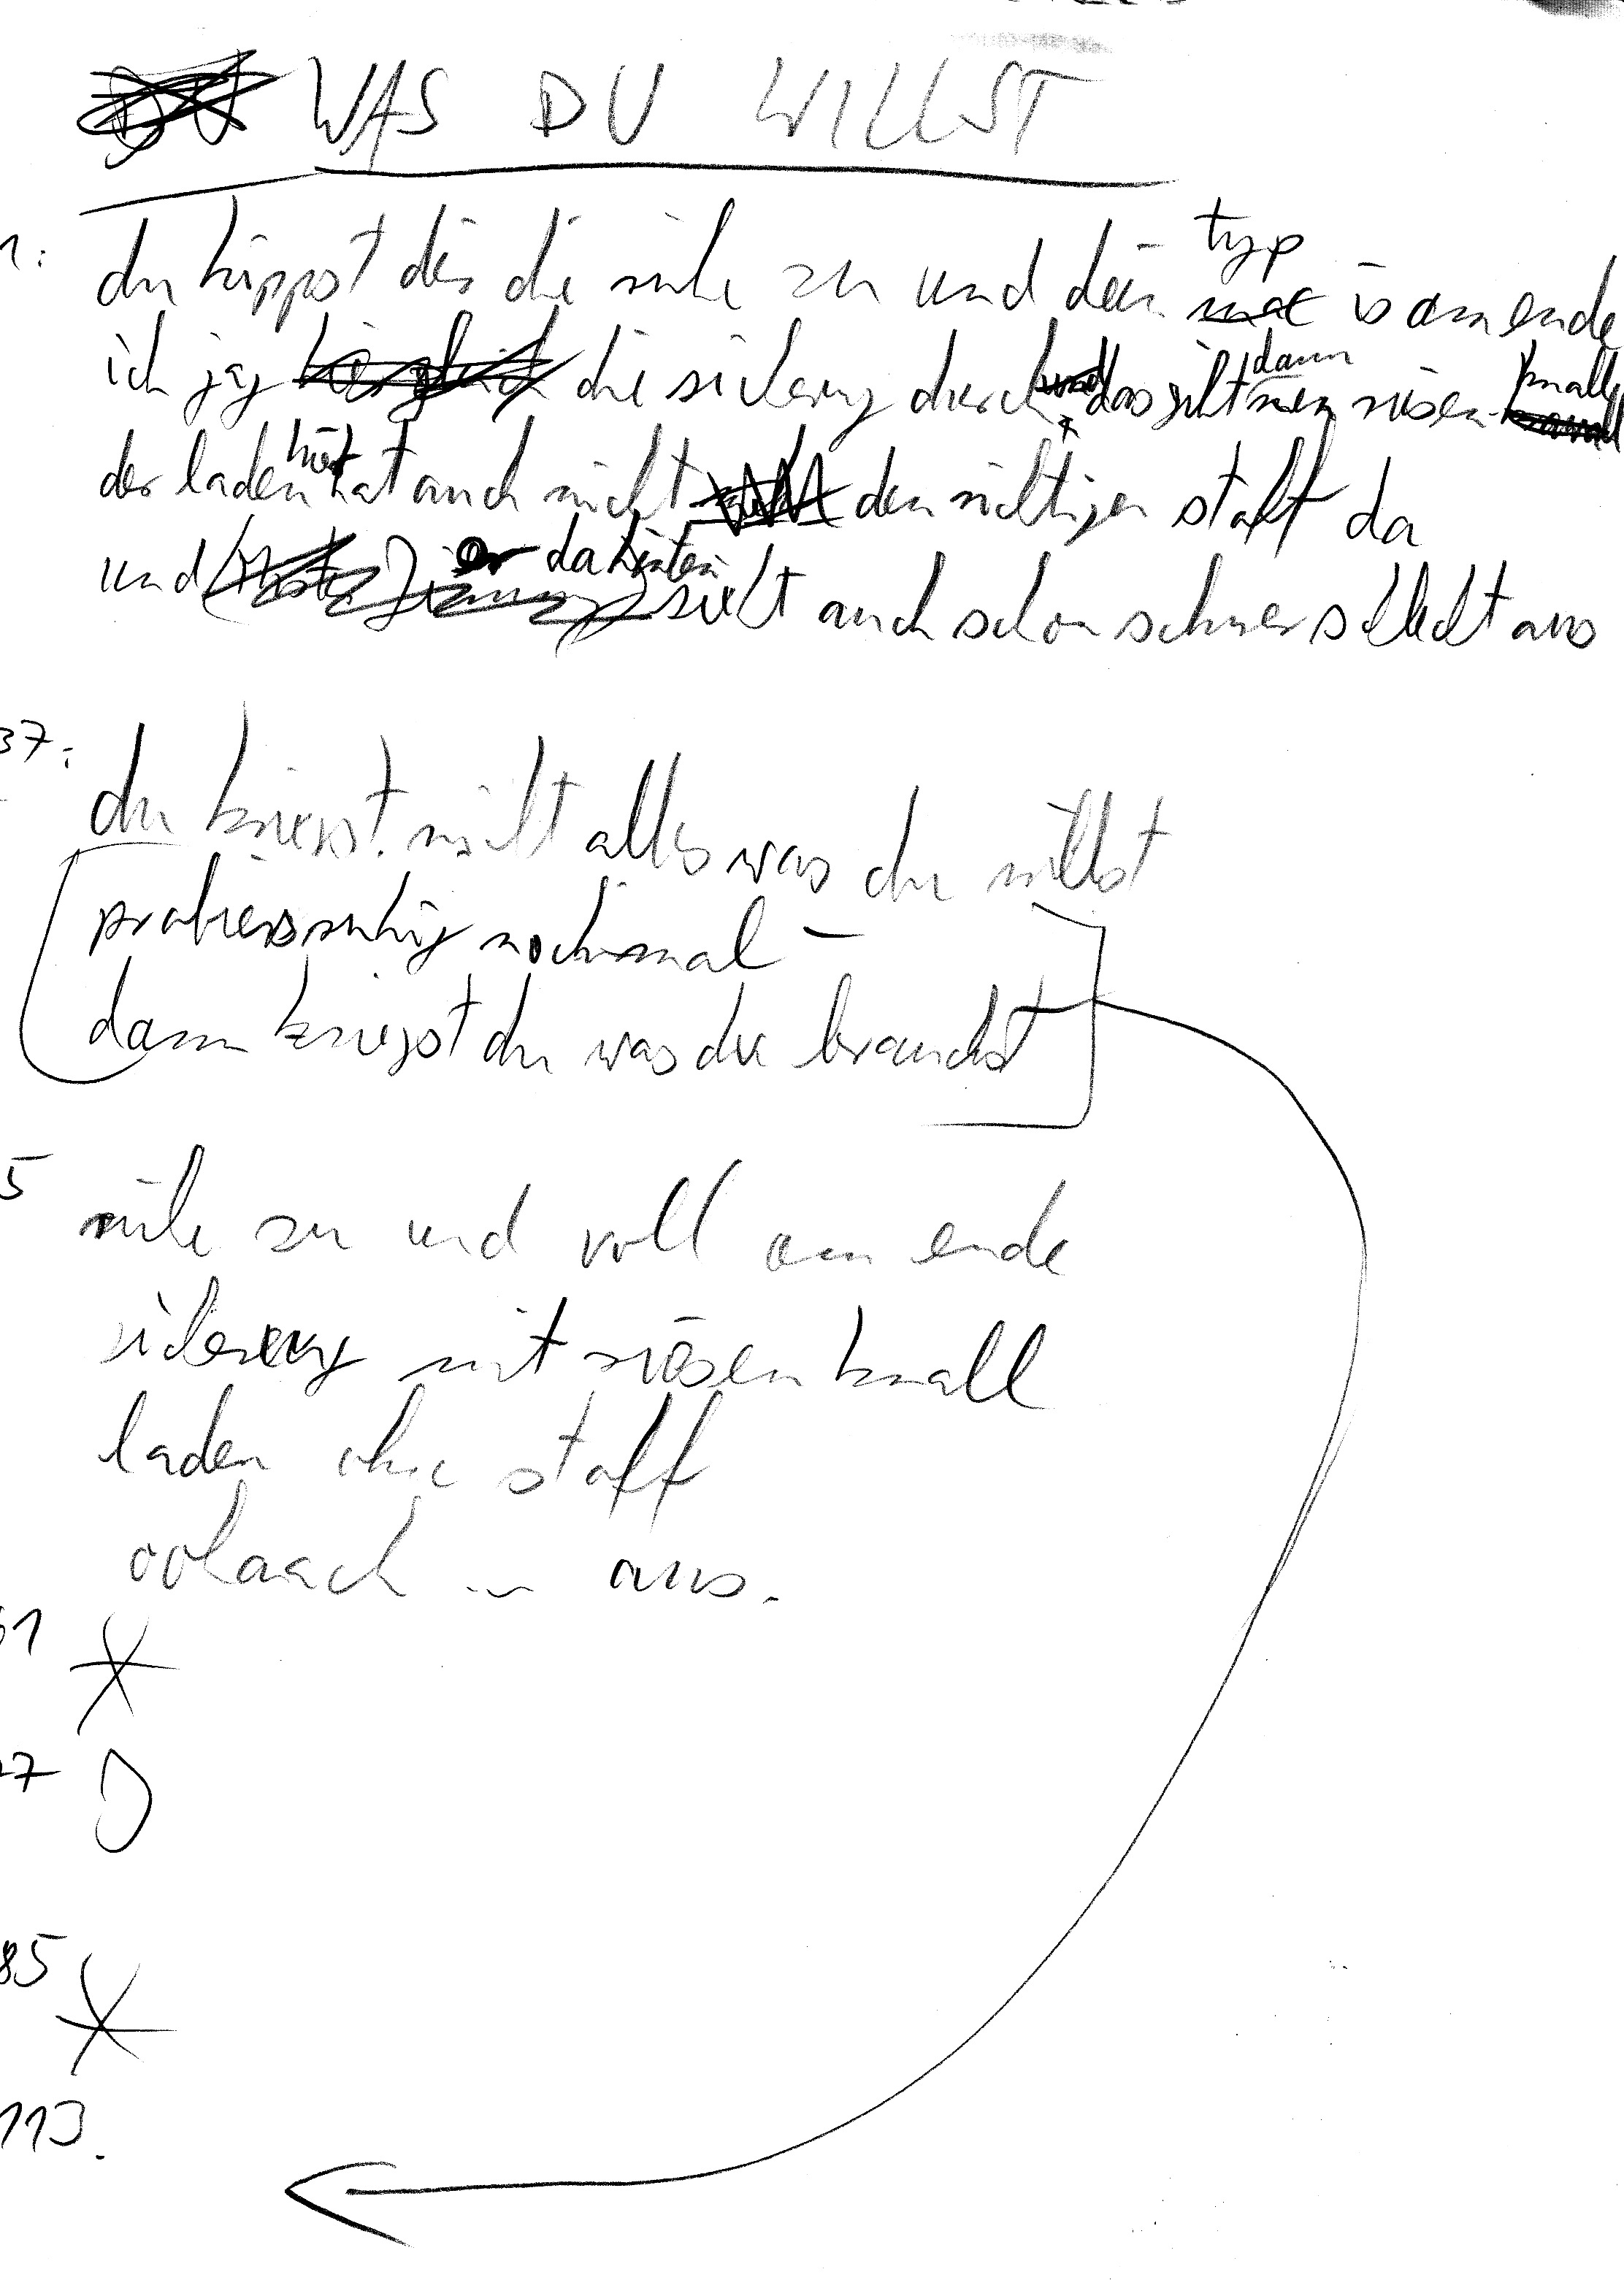 WAS DU WILLST
1: du kippst dir die rübe zu und dein typ is am ende
ich jag die sicherung durch das gibt dann nen riesen knall
der laden hier hat auch nicht den richtigen stoff da
und er da hinten sieht auch schon schwer schlecht aus
37: du kriegst nicht alles was du willst
probiers ruhig nochmal –
dann kriegst du was du brauchst
5 rübe zu und voll am ende
sicherung mit riesen knall
laden ohne stoff
oohaach ... aus.
61
77
85
113.